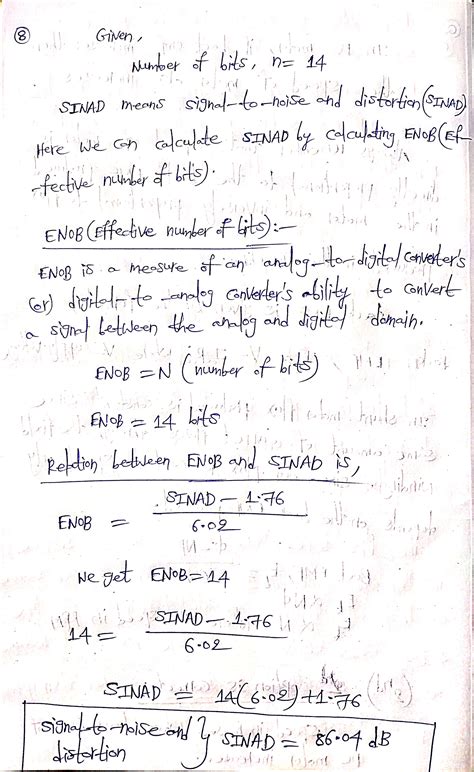 ⑧ Given,
Number of bits, n= 14
SINAD means signal-to-noise and distortion(SINAD)
Here we can calculate SINAD by calculating ENOB(Ef-
-fective number of bits).
ENOB (Effective number of bits):-
ENOB is a measure of an analog-to-digital converter's
(or) digital-to-analog converter's ability to convert
a signal between the analog and digital domain.
ENOB = N (number of bits)
ENOB = 14 bits
Relation between ENOB and SINAD is,
ENOB = SINAD - 1.76 / 6.02
We get ENOB=14
14 = SINAD - 1.76 / 6.02
SINAD = 14(6.02)+1.76
signal-to-noise and } SINAD = 86.04 dB
distortion